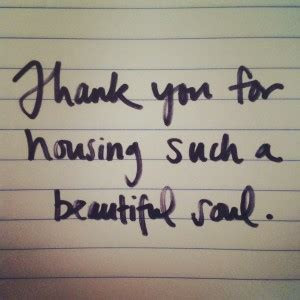 Thank you for
housing such a
beautiful soul.